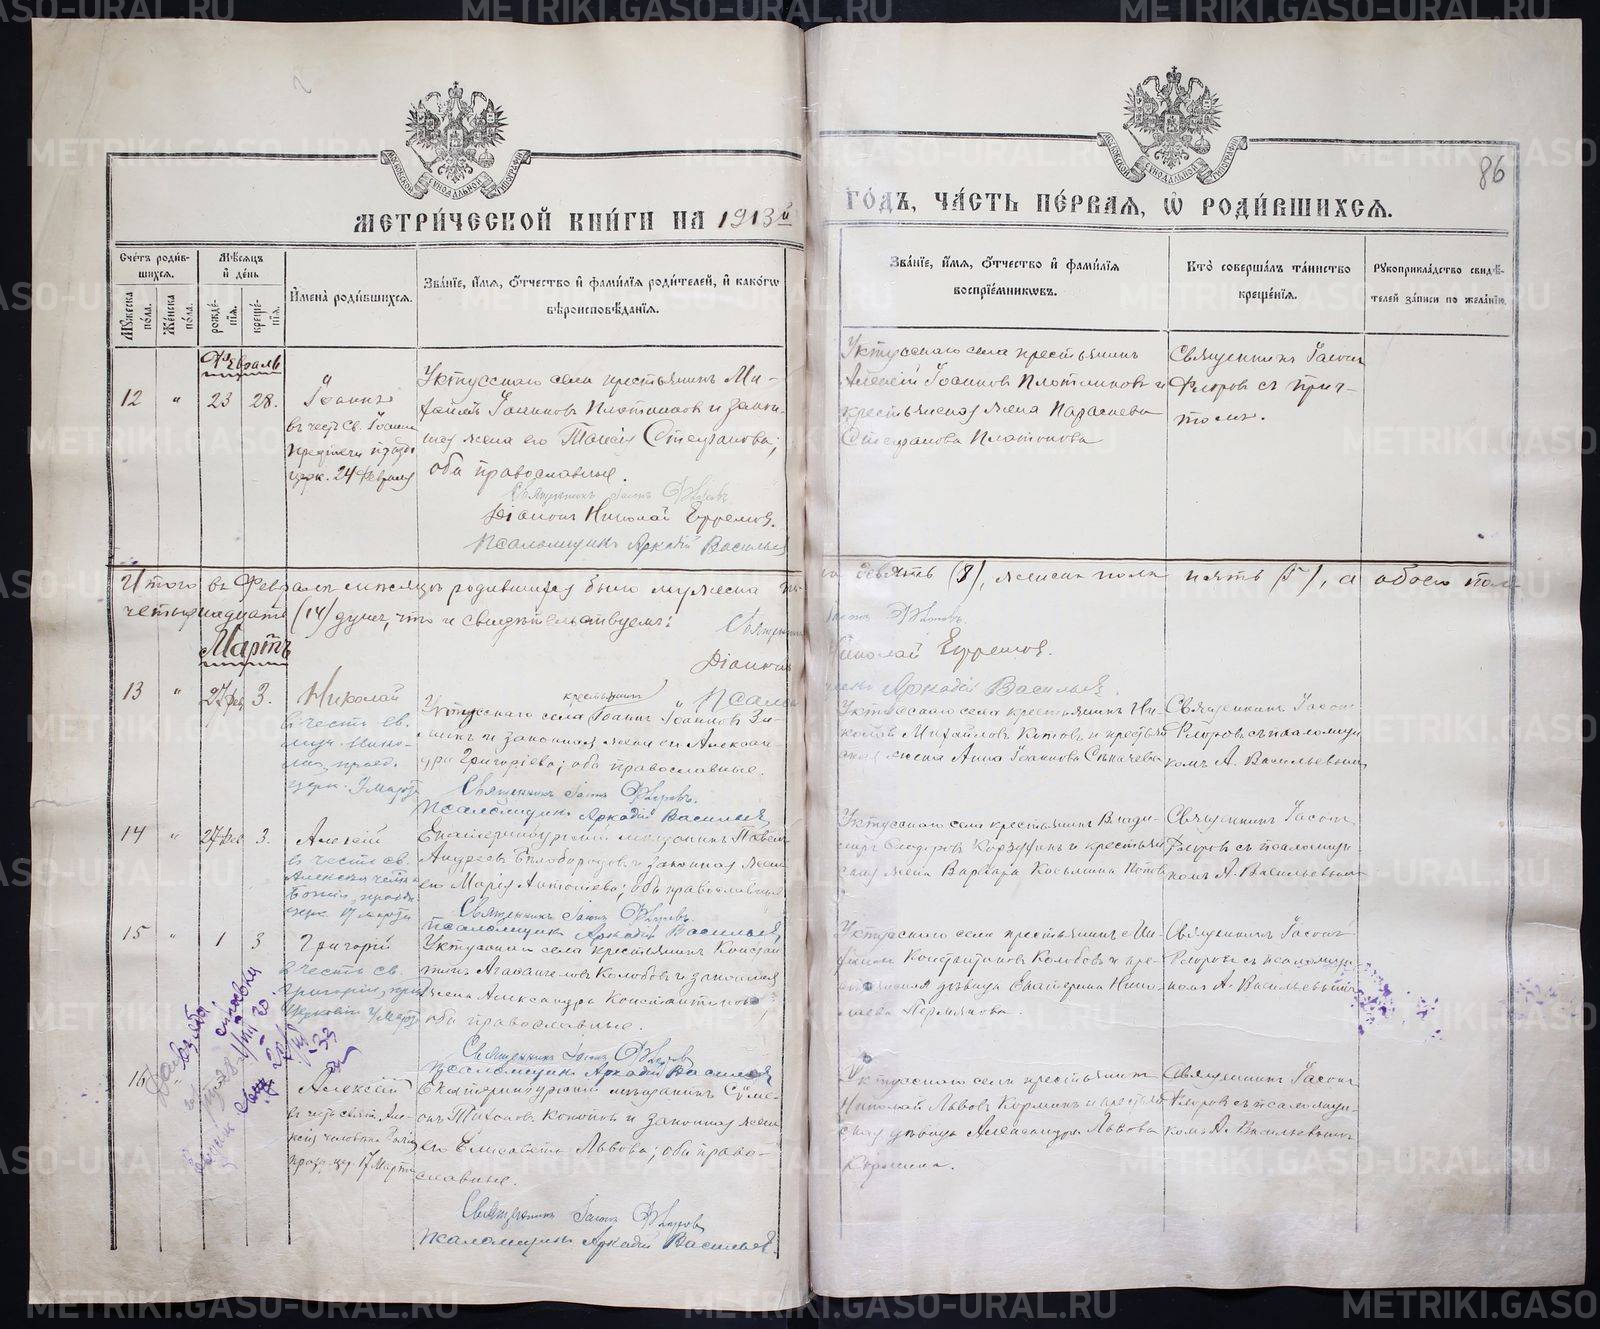 МЕТРИ́ЧЕСКОЙ КНИ́ГИ НА 1913й
ГО́ДЪ, ЧА́СТЬ ПЕ́РВАЯ, Ѡ РОДИ́ВШИХСЯ.
86
Сче́тъ роди́в-
шихся.
Мѣ́сяцъ
и де́нь
Му́жеска по́ла.
Же́нска по́ла.
рожде́нїя.
креще́нїя.
И́мена̀ роди́вшихся.
Зва́нїе, и́мя, о́тчество и фами́лїя роди́телей, и како́гѡ
вѣроисповѣ́данїя.
Зва́нїе, и́мя, о́тчество и фами́лїя
воспрїе́мниковъ.
Кто̀ соверша́лъ та́инство
креще́нїя.
Рукоприкла́дство свидѣ́-
телей за́писи по жела́нїю.
Февраль
12 " 23 28.
Іоаннъ
въ честь св. Іоанна
Предтечи празд.
церк. 24 Февраля
Уктусскаго села крестьянинъ Ми-
хаилъ Іоанновъ Платоновъ и закон-
ная жена его Таисія Стефанова;
оба православные.
Священникъ Іасонъ Флоровъ
Діаконъ Николай Ефремов.
Псаломщикъ Аркадій Васильев
Уктусскаго села крестьянинъ
Алексѣй Іоанновъ Плотниковъ и
крестьянская жена Параскева
Стефанова Платонова
Священникъ Іасонъ
Флоровъ съ прич-
томъ.
Итого въ Февралѣ мѣсяцѣ родившихся было мужеска по-
ла девять (9), женска пола пять (5), а обоего пола
четырнадцать (14) душъ, что и свидѣтельствуемъ:
Священникъ Іасонъ Флоровъ.
Діаконъ Николай Ефремов.
Псаломщикъ Аркадій Васильев.
Мартъ
13 " 27 фев. 3.
Николай
въ честь св.
муч. Нико-
лая, празд.
церк. 9 Марта
крестьянинъ
Уктусскаго села Іоаннъ Іоанновъ Зи-
минъ и законная жена его Алексан-
дра Григоріева; оба православные.
Священникъ Іасонъ Флоровъ.
Псаломщикъ Аркадій Васильев
Уктусскаго села крестьянинъ Ни-
колай Михайловъ Котовъ и крестьян
ская жена Анна Іоаннова
Священникъ Іасонъ
Флоровъ съ псаломщи
комъ А. Васильевымъ
14 " 27 фев 3.
Алексій
въ честь св.
Алексія челов.
Божія, празд.
церк. 17 марта
Екатеринбургскій мѣщанинъ Павелъ
Андреевъ Бѣлобородовъ и законная жена
его Марія Антоніева; оба православные
Священникъ Іасонъ Флоровъ.
Псаломщикъ Аркадій Васильев
Уктусскаго села крестьянинъ Влади-
миръ Ѳеодоровъ и крестьян
ская жена Варвара Косьмина
Священникъ Іасонъ
Флоровъ съ псаломщи
комъ А. Васильевымъ
15 " 1 3
Григорій
въ честь св.
Григорія, празд
церковію Марта
Уктусскаго села крестьянинъ Констан
тинъ Колобовъ и законная
жена Александра Константинова;
оба православные.
Священникъ Іасонъ Флоровъ
Псаломщикъ Аркадій Васильев
Уктусскаго села крестьянинъ Ми-
хаилъ Константиновъ Колобовъ и кре-
стьянская дѣвица Екатерина Нико-
лаева Пермякова.
Священникъ Іасонъ
Флоровъ съ псаломщи
комъ А. Васильевымъ
16 "
Алексій
въ честь свят. Але-
ксія человѣка Божія
празд. цер. 17 Марта
Екатеринбургскій мѣщанинъ Симе-
онъ Тихоновъ Кононовъ и законная жена
его Елисавета Львова; оба право-
славные.
Священникъ Іасонъ Флоровъ
Псаломщикъ Аркадій Васильев.
Уктусскаго села крестьянинъ
Николай Львовъ Корминъ и крестьян
ская дѣвица Александра Львова
Кормина.
Священникъ Іасонъ
Флоровъ съ псаломщи-
комъ А. Васильевымъ
METRIKI.GASO-URAL.RU